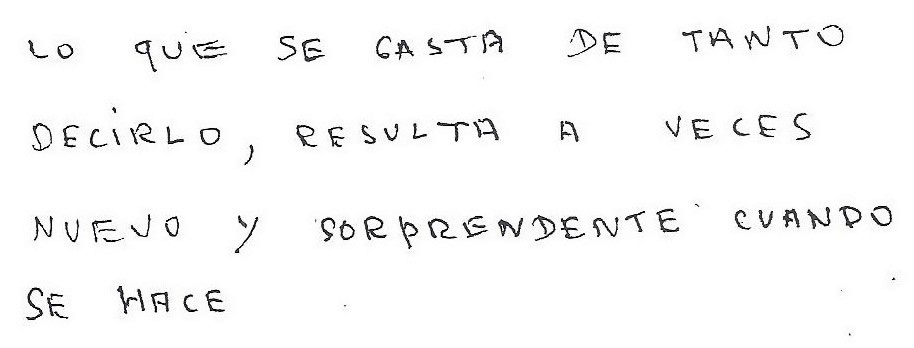 LO QUE SE GASTA DE TANTO
DECIRLO, RESULTA A VECES
NUEVO Y SORPRENDENTE CUANDO
SE HACE